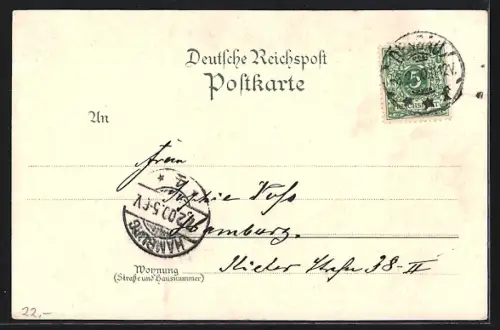 Deutsche Reichspost
Postkarte
5
An
Frau
Sophie Voss
Hamburg.
HAMBURG
Kieler Straße 38-II
Wohnung
(Straße und Hausnummer)
22,-